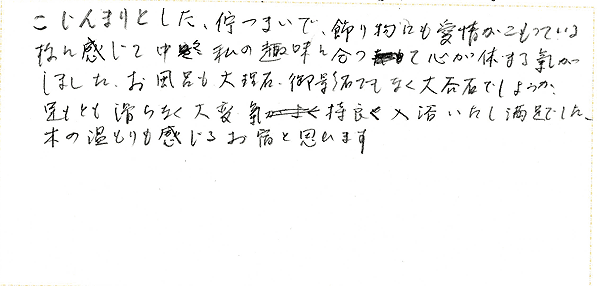 こじんまりとした、佇つまいで、飾り物にも愛情がこもっている
様に感じて中々私の趣味に合って心が休まる氣が
しました、お風呂も大理石、御影石でもなく大谷石でしょうか、
足もとも滑らなく大変氣持良く入浴いたし満足でした、
木の温もりも感じるお宿と思います